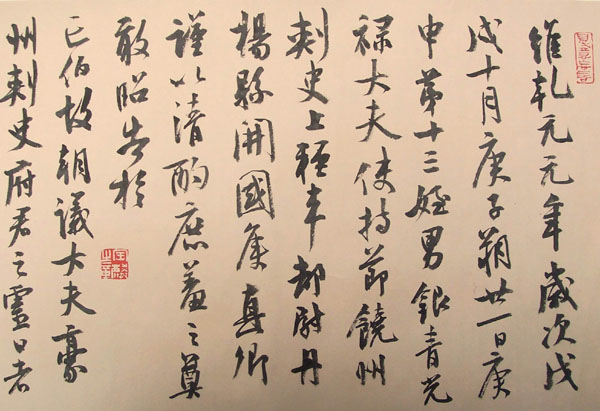 維乾元元年歲次戊
戌十月庚子朔廿一日庚
申第十三姪男銀青光
祿大夫使持節饒州
刺史上輕車都尉丹
楊縣開國侯真卿
謹以清酌庶羞之奠
敢昭告於
亡伯故朝議大夫豪
州刺史府君之靈曰者